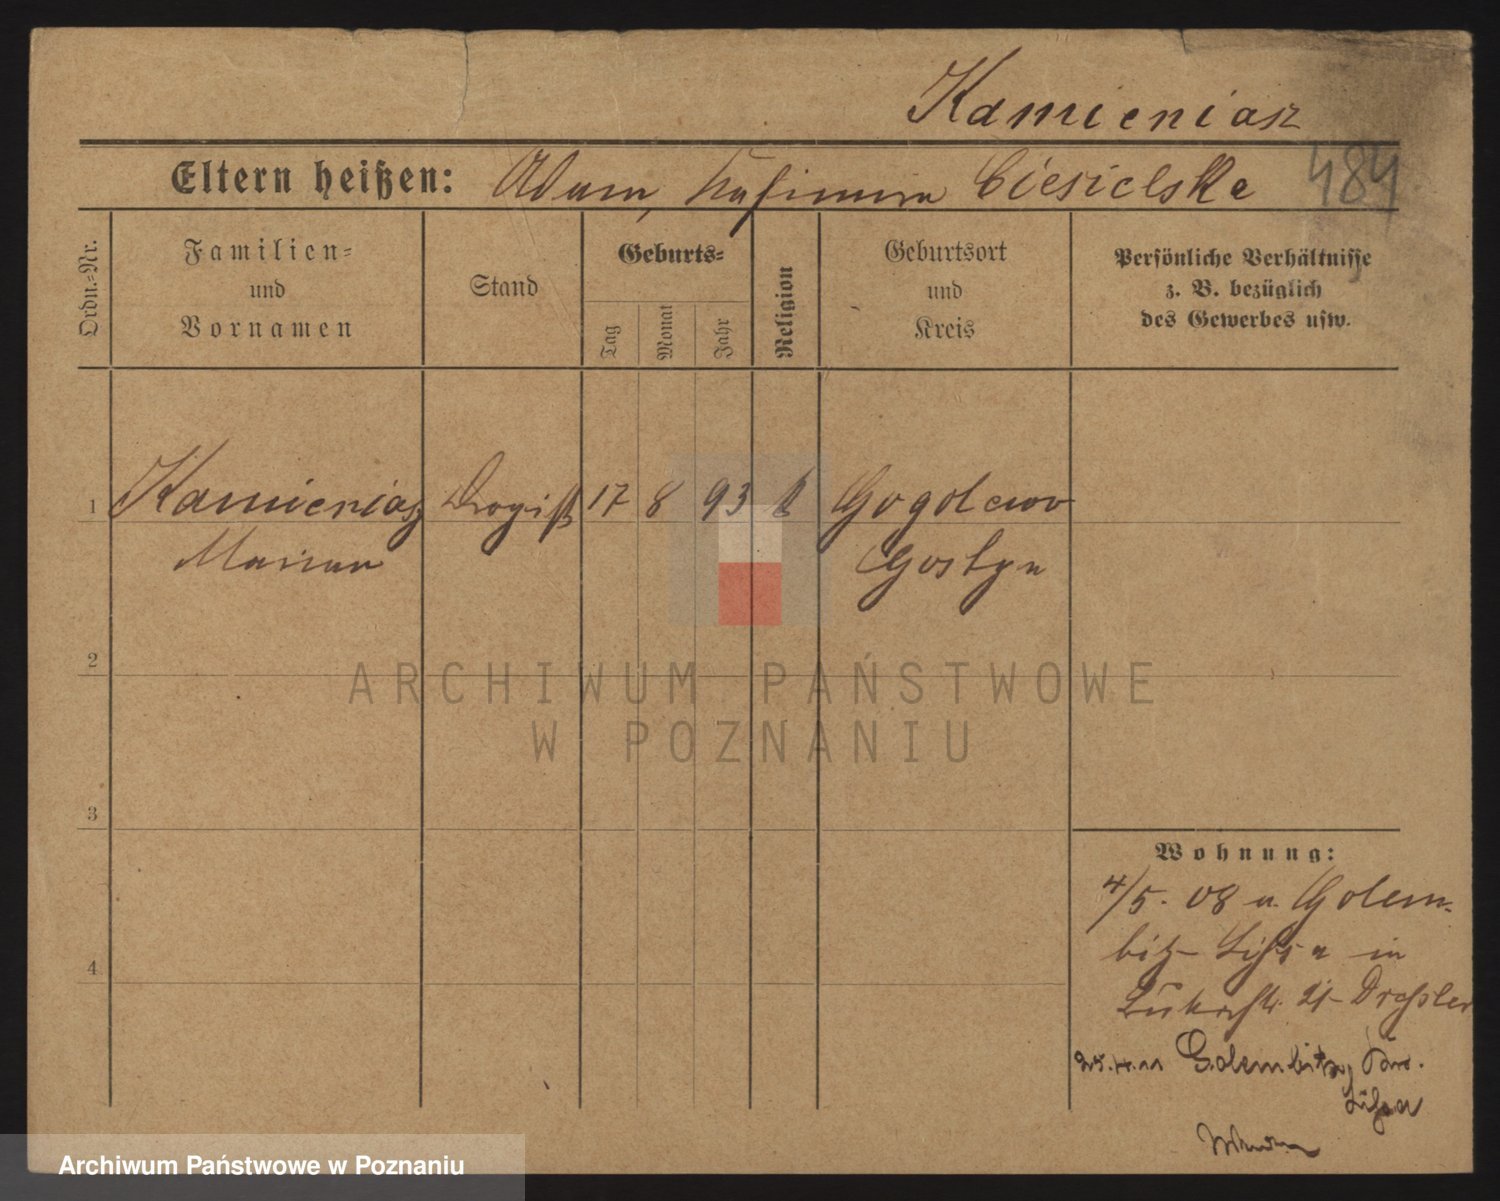 Kamieniasz
484
Eltern heißen: Adam, Kasimira Ciesielska
Ordn.-Nr.
Familien-
und
Vornamen
Stand
Geburts-
Tag
Monat
Jahr
Religion
Geburtsort
und
Kreis
Persönliche Verhältnisse
z. B. bezüglich
des Gewerbes usw.
1 Kamieniasz Drogist 17 8 93 k Gogolewo
Marian Gostyn
2
3
4
ARCHIWUM PAŃSTWOWE
W POZNANIU
Wohnung:
4/5. 08 n. Golem-
bitz Lissa in
21 Drossler
25.4.11 Golembitz
Lissa
Archiwum Państwowe w Poznaniu